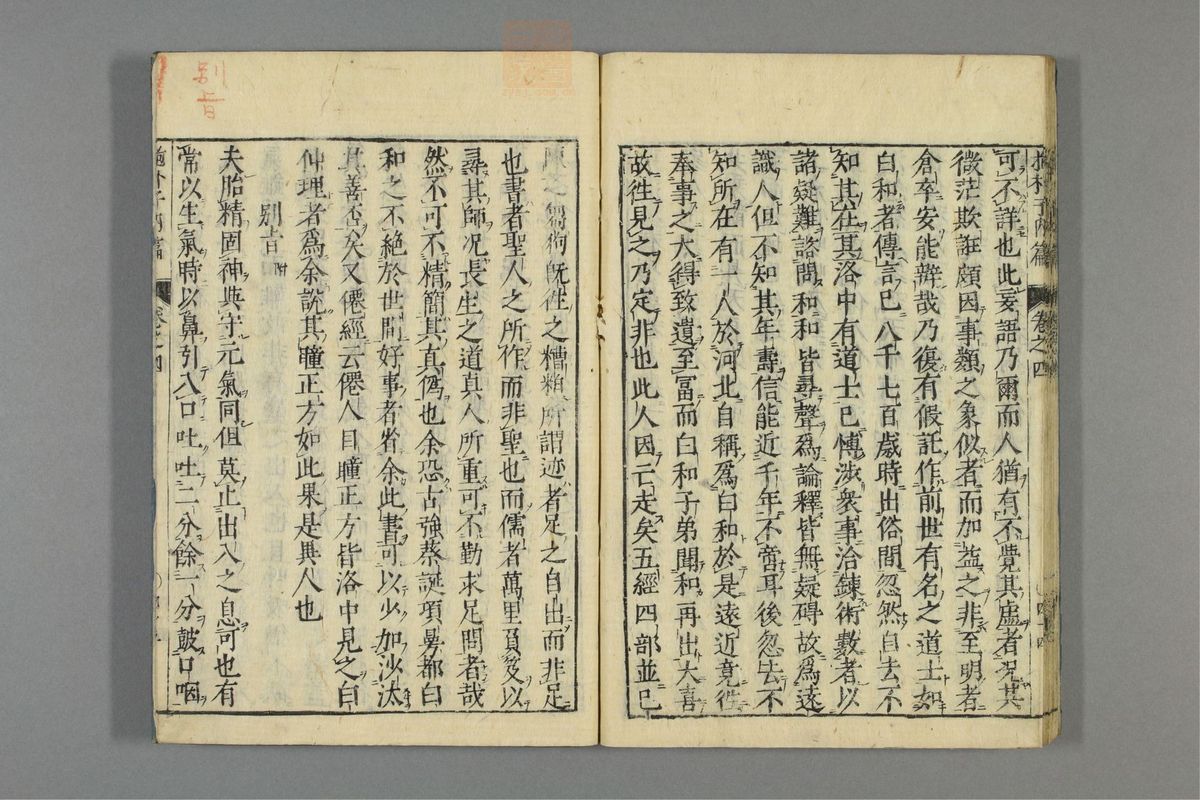 抱朴子內篇 卷之四
可不詳也此妄語乃爾而人猶有不覺其虛者况其
微茫欺誑頗因事類之象似者而加益之非至明者
倉卒安能辨哉乃復有假託作前世有名之道士如
白和者傳言已八千七百歲時出俗間忽然自去不
知其在其洛中有道士已愽涉衆事洽鍊術數者以
諸疑難諮問和和皆尋聲爲論釋皆無疑碍故爲遠
識人但不知其年壽信能近千年不啻耳後忽去不
知所在有一人於河北自稱爲白和於是遠近竟徃
奉事之大得致遺至冨而白和子弟聞和再出大喜
故徃見之乃定非也此人因亡走矣五經四部並已
陳之芻狗旣徃之糟粕所謂迹者足之自出而非足
也書者聖人之所作而非聖也而儒者萬里負笈以
尋其師况長生之道真人所重可不勤求足問者哉
然不可不精簡其真僞也余恐古強蔡誕項㬌都白
和之不絕於世間好事者省余此書可以少加沙汰
其善否矣又僊經云僊人目瞳正方皆洛中見之白
仲理者爲余說其瞳正方如此果是異人也
別旨附
夫胎精固神與守元氣同但莫止出入之息可也有
常以生氣時以鼻引入口吐吐二分餘一分皷口咽
別旨